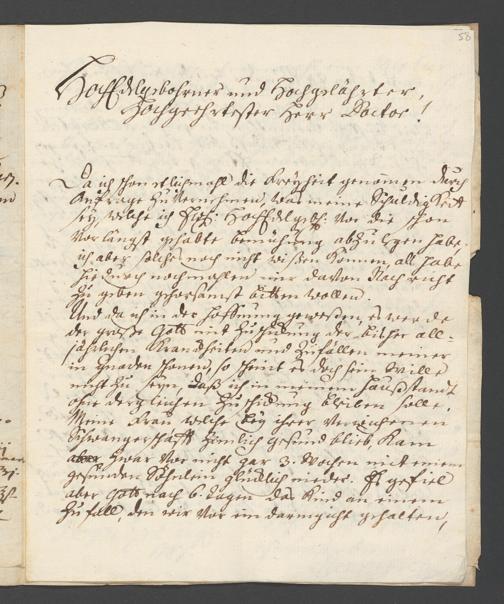 58
HochEdelgebohrner und Hochgelährter,
Hochgeehrtester Herr Doctor!
Da ich schon etlichmahl die Freyheit genommen durch
Anfrage zu vernehmen, was meine Schuldigkeit
sey, welche ich HochEdelgeb: vor die schon
vorlängst gehabte bemühung abzulegen habe,
ich aber solches noch nicht wißen können, als habe
hiedurch nochmahlen mir davon Nachricht
zu geben gehorsamst bitten wollen.
Und da ich in der Hoffnung gewesen, es werde
der große Gott mit der bisher all-
jährlichen Kranckheiten und Zufällen meiner
in Gnaden schonen, so scheint es doch sein Wille
nicht zu seyn, daß ich in meinem Haußstand
ohne dergleichen bleiben solle.
Meine Frau welche bey ihrer
Schwangerschafft zimlich gesund blieb kam
zwar vor nicht gar 3. Wochen mit einem
gesunden Söhnlein glücklich nieder. Es gefiel
aber Gott nach 6 Tagen das Kind an einem
Zufall, den wir vor ein darmgicht gehalten,